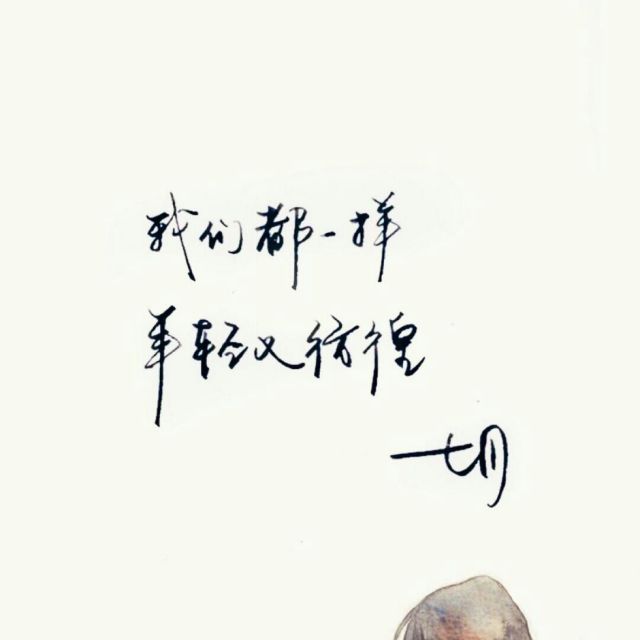 我们都一样
年轻又彷徨
一切